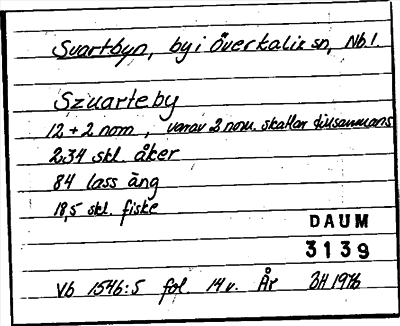 Svartbyn, by i Överkalix sn, Nb l.
Szuarteby
12+2 nom, varav 2 nom. skattar tillsammans
234 skl. åker
84 lass äng
18,5 skl. fiske
DAUM
3139
Vb 1546:5 fol. 14v. År BH 1976